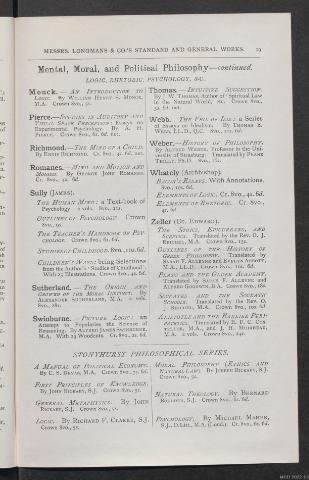 MESSRS. LONGMANS & CO.'S STANDARD AND GENERAL WORKS.
Mental, Moral, and Political Philosophy—continued.
LOGIC, RHETORIC, PSYCHOLOGY, &C.
Monck.—AN INTRODUCTION TO
LOGIC. By WILLIAM HENRY S. MONCK,
M.A. Crown 8vo., 5s.
Pierce.—STUDIES IN AUDITORY AND
VISUAL SPACE PERCEPTION: Essays on
Experimental Psychology. By A. H.
PIERCE. Crown 8vo., 6s. 6d. net.
Richmond.—THE MIND OF A CHILD.
By ENNIS RICHMOND. Cr. 8vo., 3s. 6d. net.
Romanes.—MIND AND MOTION AND
MONISM. By GEORGE JOHN ROMANES,
Cr. 8vo., 4s. 6d.
Sully (JAMES).
THE HUMAN MIND: a Text-book of
Psychology. 2 vols. 8vo., 21s.
OUTLINES OF PSYCHOLOGY. Crown
8vo., 9s.
THE TEACHER'S HANDBOOK OF PSY-
CHOLOGY. Crown 8vo., 6s. 6d.
STUDIES OF CHILDHOOD. 8vo., 10s. 6d.
CHILDREN'S WAYS: being Selections
from the Author's 'Studies of Childhood'.
With 25 Illustrations. Crown 8vo., 4s. 6d.
Sutherland.—THE ORIGIN AND
GROWTH OF THE MORAL INSTINCT. By
ALEXANDER SUTHERLAND, M.A. 2 vols.
8vo., 28s.
Swinburne.—PICTURE LOGIC: an
Attempt to Popularise the Science of
Reasoning. By ALFRED JAMES SWINBURNE,
M.A. With 23 Woodcuts. Cr. 8vo., 2s. 6d.
Thomas.—INTUITIVE SUGGESTION.
By J. W. THOMAS, Author of 'Spiritual Law
in the Natural World,' etc. Crown 8vo.,
3s. 6d. net.
Webb.—THE VEIL OF ISIS: a Series
of Essays on Idealism. By THOMAS E.
WEBB, LL.D., Q.C. 8vo., 10s. 6d.
Weber.—HISTORY OF PHILOSOPHY.
By ALFRED WEBER, Professor in the Uni-
versity of Strasburg. Translated by FRANK
THILLY, Ph.D. 8vo., 16s.
Whately (Archbishop).
BACON'S ESSAYS. With Annotations.
8vo., 10s. 6d.
ELEMENTS OF LOGIC. Cr. 8vo., 4s. 6d.
ELEMENTS OF RHETORIC. Cr. 8vo.,
4s. 6d.
Zeller (Dr. EDWARD).
THE STOICS, EPICUREANS, AND
SCEPTICS. Translated by the Rev. O. J.
REICHEL, M.A. Crown 8vo., 15s.
OUTLINES OF THE HISTORY OF
GREEK PHILOSOPHY. Translated by
SARAH F. ALLEYNE and EVELYN ABBOTT,
M.A., LL.D. Crown 8vo., 10s. 6d.
PLATO AND THE OLDER ACADEMY.
Translated by SARAH F. ALLEYNE and
ALFRED GOODWIN, B.A. Crown 8vo., 18s.
SOCRATES AND THE SOCRATIC
SCHOOLS. Translated by the Rev. O.
J. REICHEL, M.A. Crown 8vo., 10s. 6d.
ARISTOTLE AND THE EARLIER PERI-
PATETICS. Translated by B. F. C. COS-
TELLOE, M.A., and J. H. MUIRHEAD,
M.A. 2 vols. Crown 8vo., 24s.
STONYHURST PHILOSOPHICAL SERIES.
A MANUAL OF POLITICAL ECONOMY.
By C. S. DEVAS, M.A. Crown 8vo., 7s. 6d.
FIRST PRINCIPLES OF KNOWLEDGE.
By JOHN RICKABY, S.J. Crown 8vo., 5s.
GENERAL METAPHYSICS. By JOHN
RICKABY, S.J. Crown 8vo., 5s.
LOGIC. By RICHARD F. CLARKE, S.J.
Crown 8vo., 5s.
MORAL PHILOSOPHY (ETHICS AND
NATURAL LAW). By JOSEPH RICKABY, S.J.
Crown 8vo., 5s.
NATURAL THEOLOGY. By BERNARD
BOEDDER, S.J. Crown 8vo., 6s. 6d.
PSYCHOLOGY. By MICHAEL MAHER,
S.J., D.Litt., M.A. (Lond.). Cr. 8vo., 6s. 6d.